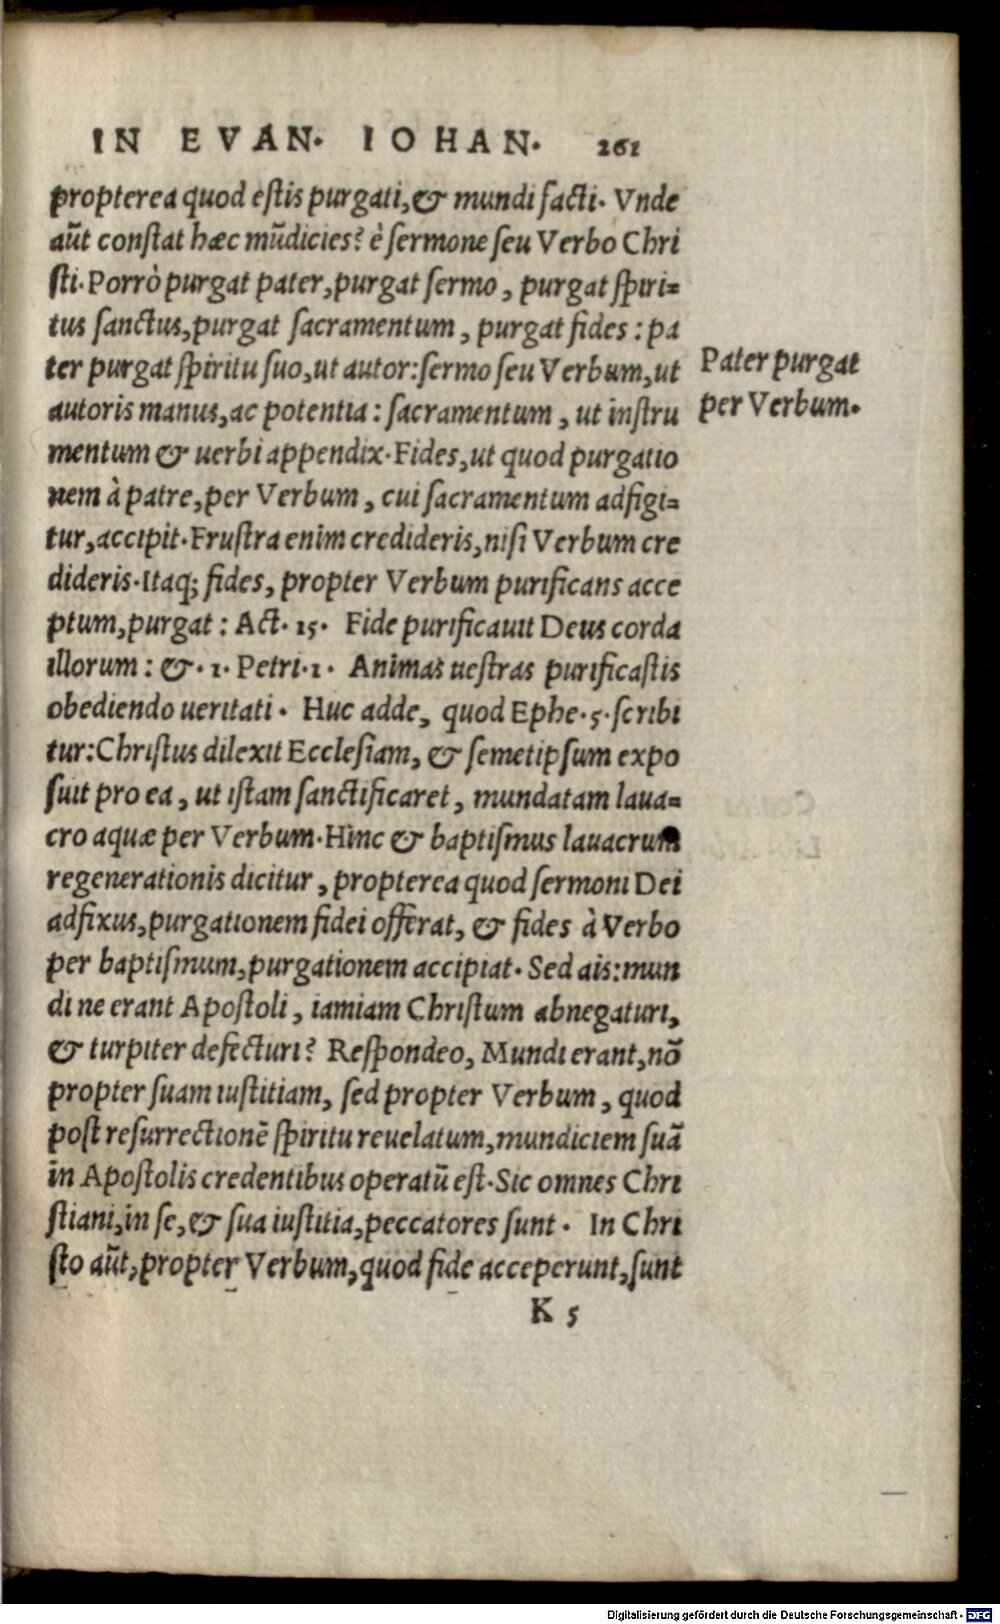 IN EVAN. IOHAN. 261
propterea quod estis purgati, & mundi facti. Vnde
aūt constat hæc mūdicies? è sermone seu Verbo Chri
sti. Porrò purgat pater, purgat sermo, purgat spiri=
tus sanctus, purgat sacramentum, purgat fides: pa
ter purgat spiritu suo, ut autor: sermo seu Verbum, ut
autoris manus, ac potentia: sacramentum, ut instru
mentum & uerbi appendix. Fides, ut quod purgatio
nem à patre, per Verbum, cui sacramentum adfigi=
tur, accipit. Frustra enim credideris, nisi Verbum cre
dideris. Itaq; fides, propter Verbum purificans acce
ptum, purgat: Act. 15. Fide purificauit Deus corda
illorum: &. 1. Petri. 1. Animas uestras purificastis
obediendo ueritati. Huc adde, quod Ephe. 5. scribi
tur: Christus dilexit Ecclesiam, & semetipsum expo
suit pro ea, ut istam sanctificaret, mundatam laua=
cro aquæ per Verbum. Hinc & baptismus lauacrum
regenerationis dicitur, propterea quod sermoni Dei
adfixus, purgationem fidei offerat, & fides à Verbo
per baptismum, purgationem accipiat. Sed ais: mun
di ne erant Apostoli, iamiam Christum abnegaturi,
& turpiter defecturi? Respondeo, Mundi erant, nō
propter suam iustitiam, sed propter Verbum, quod
post resurrectionē spiritu reuelatum, mundiciem suā
in Apostolis credentibus operatū est. Sic omnes Chri
stiani, in se, & sua iustitia, peccatores sunt. In Chri
sto aūt, propter Verbum, quod fide acceperunt, sunt
K 5
Pater purgat
per Verbum.
Digitalisierung gefördert durch die Deutsche Forschungsgemeinschaft - DFG